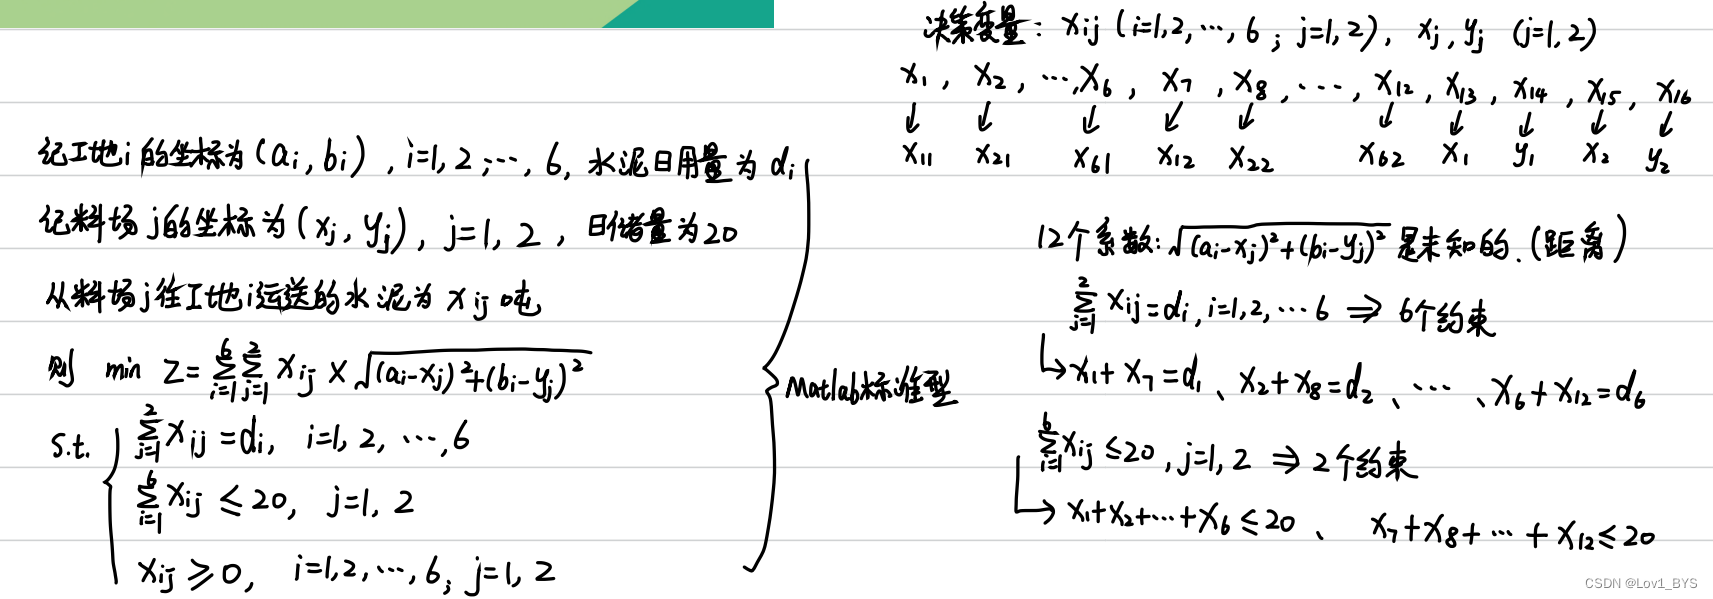 记工地i的坐标为(aᵢ, bᵢ), i=1, 2, ⋯, 6, 水泥日用量为dᵢ
记料场j的坐标为(xⱼ, yⱼ), j=1, 2, 日储量为20
从料场j往工地i运送的水泥为xᵢⱼ吨
则 min Z=∑_{i=1}^{6}∑_{j=1}^{2} xᵢⱼ×√((aᵢ-xⱼ)²+(bᵢ-yⱼ)²)
s.t. { ∑_{j=1}^{2} xᵢⱼ=dᵢ, i=1, 2, ⋯, 6
∑_{i=1}^{6} xᵢⱼ≤20, j=1, 2
xᵢⱼ≥0, i=1,2,⋯,6; j=1, 2
Matlab标准型
决策变量: xᵢⱼ (i=1,2,⋯,6; j=1,2), xⱼ, yⱼ (j=1,2)
x₁, x₂, ⋯, x₆, x₇, x₈, ⋯, x₁₂, x₁₃, x₁₄, x₁₅, x₁₆
↓ ↓ ↓ ↓ ↓ ↓ ↓ ↓ ↓ ↓
x₁₁ x₂₁ x₆₁ x₁₂ x₂₂ x₆₂ x₁ y₁ x₂ y₂
12个系数: √((aᵢ-xⱼ)²+(bᵢ-yⱼ)²) 是未知的.(距离)
∑_{j=1}^{2} xᵢⱼ=dᵢ, i=1,2,⋯6 ⇒ 6个约束
↳ x₁+x₇=d₁、x₂+x₈=d₂、⋯、x₆+x₁₂=d₆
∑_{i=1}^{6} xᵢⱼ≤20, j=1, 2 ⇒ 2个约束
↳ x₁+x₂+⋯+x₆≤20、 x₇+x₈+⋯+x₁₂≤20
CSDN @Lov1_BYS